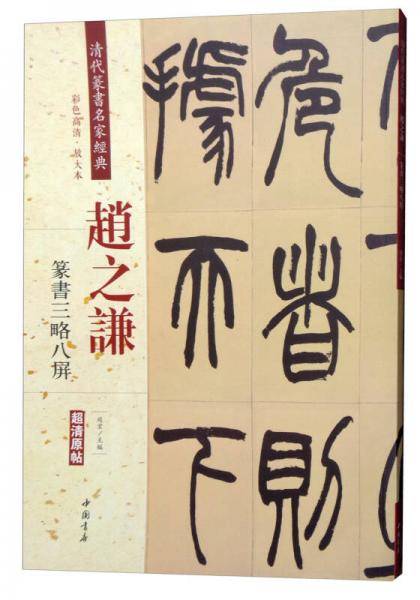 清代篆書名家經典
彩色高清·放大本
趙之謙
篆書三略八屏
超清原帖
中国書店
危者則
而下